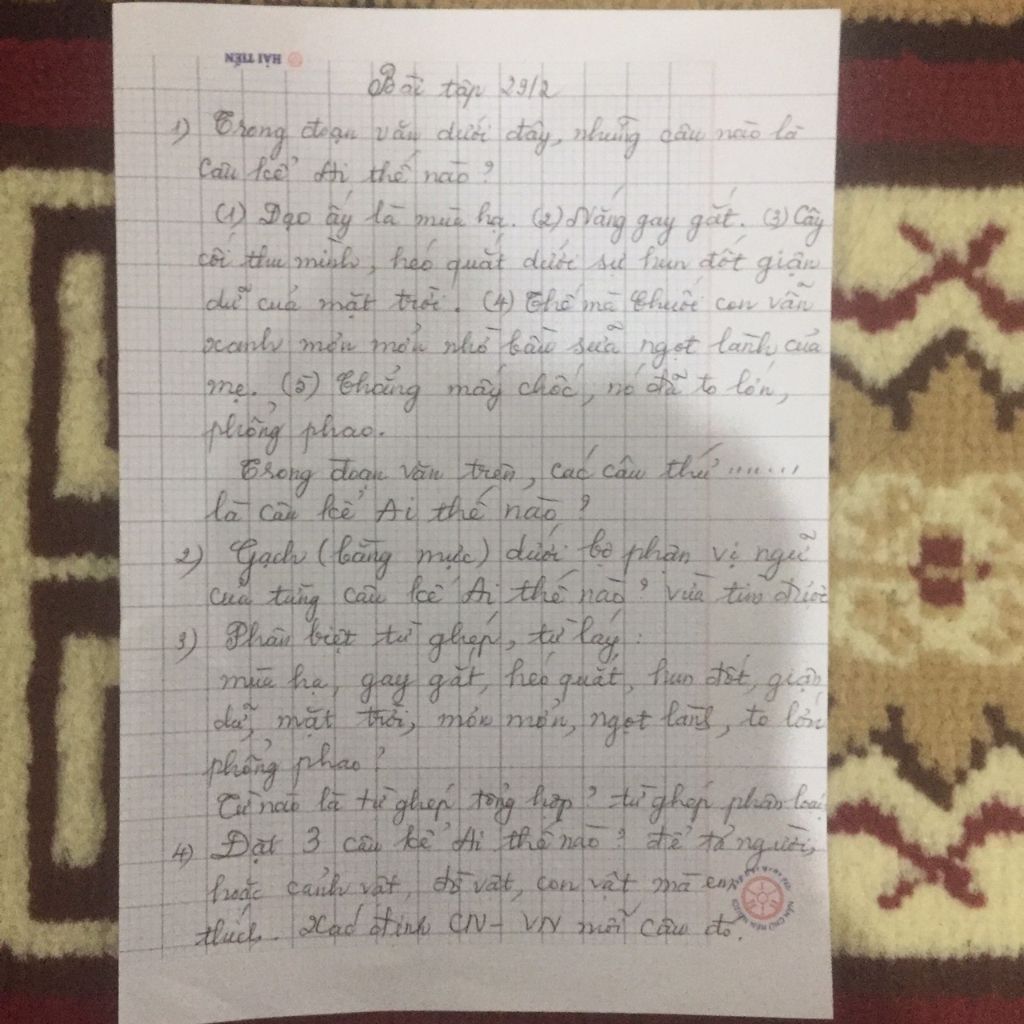 HẢI TIẾN
Bài tập 29/2
1) Trong đoạn văn dưới đây, những câu nào là
câu kể Ai thế nào?
(1) Dạo ấy là mùa hạ. (2) Nắng gay gắt. (3) Cây
cối thu mình, héo quắt dưới sự hun đốt giận
dữ của mặt trời. (4) Thế mà chuối con vẫn
xanh mơn mởn nhờ bầu sữa ngọt lành của
mẹ. (5) Chẳng mấy chốc, nó đã to lớn,
phổng phao.
Trong đoạn văn trên, các câu thứ .......
là câu kể Ai thế nào?
2) Gạch (bằng mực) dưới bộ phận vị ngữ
của từng câu kể Ai thế nào? vừa tìm được
3) Phân biệt từ ghép, từ láy:
mùa hạ, gay gắt, héo quắt, hun đốt, giận
dữ, mặt trời, mơn mởn, ngọt lành, to lớn
phổng phao?
Từ nào là từ ghép tổng hợp? từ ghép phân loại
4) Đặt 3 câu kể Ai thế nào? để tả người,
hoặc cảnh vật, đồ vật, con vật mà em
thích. Xác định CN - VN mỗi câu đó.